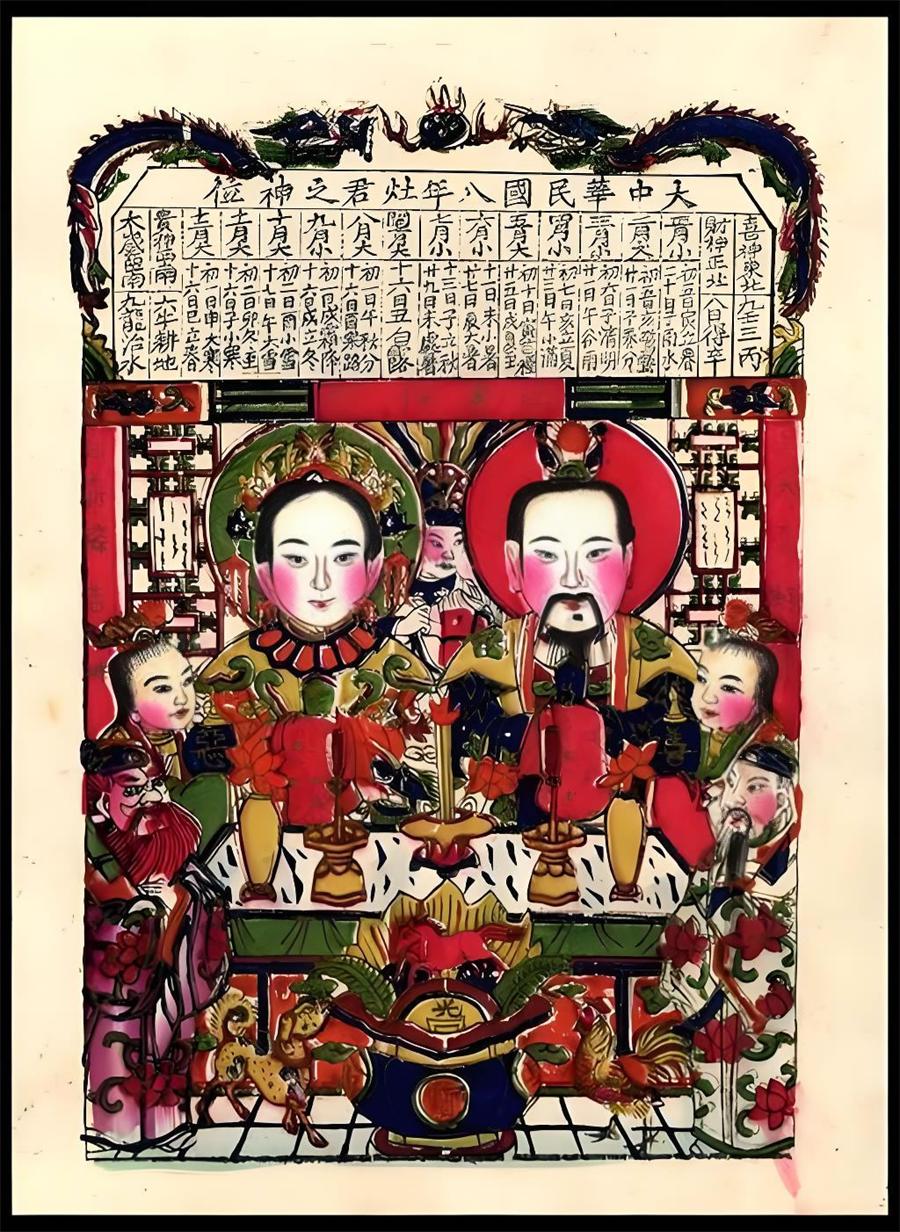 大中華民國八年灶君之神位
喜神東北 九壬三丙
財神正北 八日得辛
正月小 初五日寅立春 二十日子雨水
二月大 初五日亥驚蟄 廿一日子春分
三月小 初六日子清明 廿一日午谷雨
四月小 初七日亥立夏 廿三日午小滿
五月大 初十日寅芒種 廿五日戌夏至
六月小 十一日未小暑 廿七日辰大暑
七月小 十三日子立秋 廿九日未處暑
閏七月大 十六日丑白露
八月大 初一日午秋分 十六日酉寒路
九月小 初一日戌霜降 十六日戌立冬
十月大 初二日酉小雪 十七日午大雪
十一月大 初二日卯冬至 十六日子小寒
十二月大 初一日申大寒 十六日巳立春
貴神西南 六牛耕地
太歲西南 九龍治水
善
惡